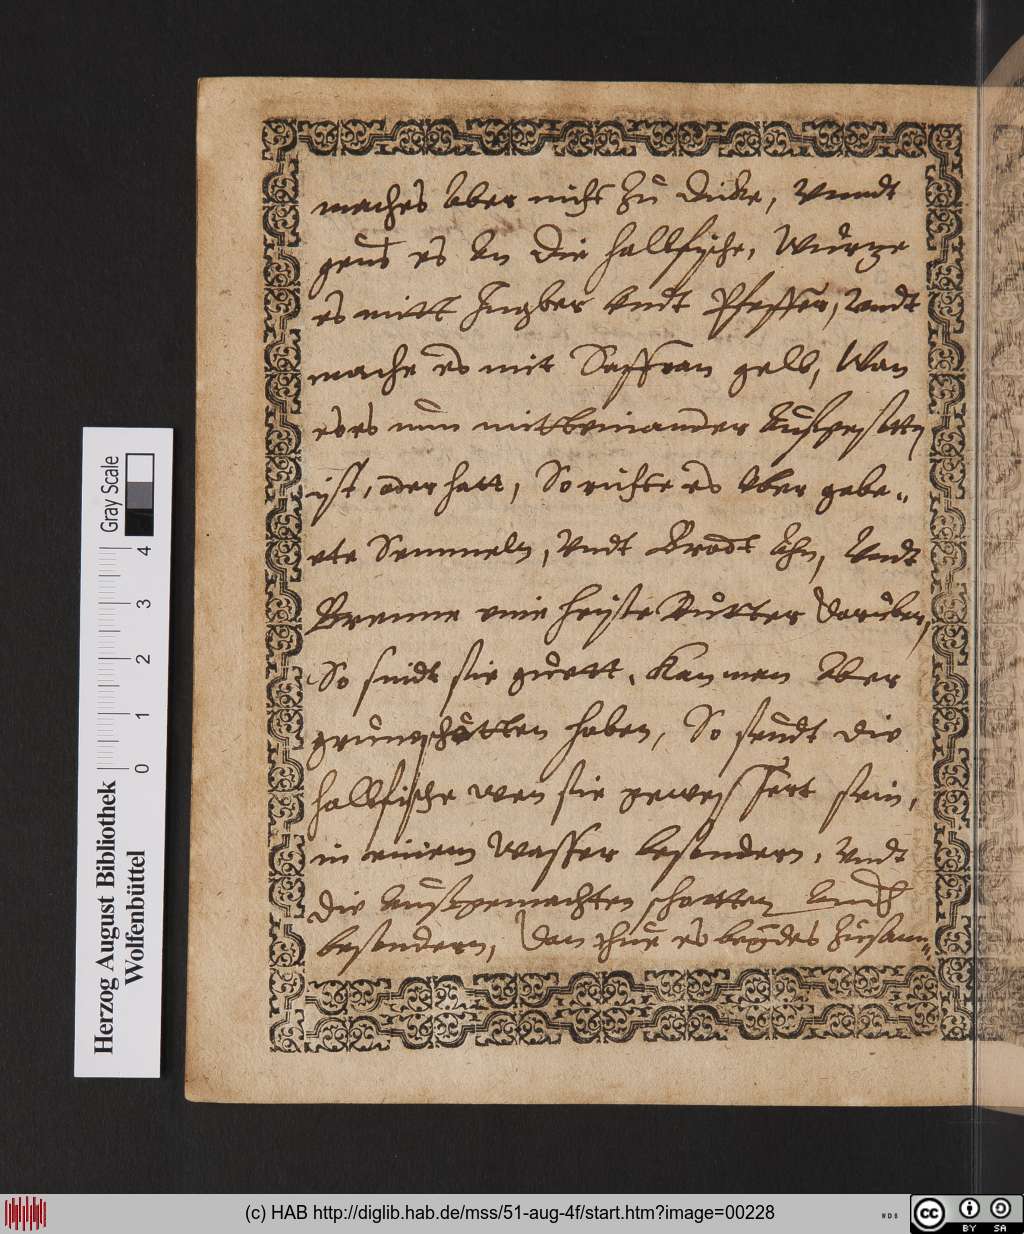 maches aber nicht zu dicke, Vnndt
geus es an die halbfische, Würtze
es mitt Ingber vndt Pfeffer, Vndt
mache es mit Saffran gelb, Wan
es nun mitteinander
ist, oder hatt, So richte es vber gebe-
ete Semmeln, Vndt Brodt ahn, Vndt
Brenne eine heiße Butter darüber,
So sindt sie guett. Kan man aber
grüneschotten haben, So seudt die
halbfische wen sie gewessert sein,
in einem Wasser besondern, Vndt
die außgemachten schotten auch
besondern, dan thue es beydes zusam-
Herzog August Bibliothek
Wolfenbüttel
Gray Scale
0 1 2 3 4
(c) HAB http://diglib.hab.de/mss/51-aug-4f/start.htm?image=00228
WDB
cc BY SA